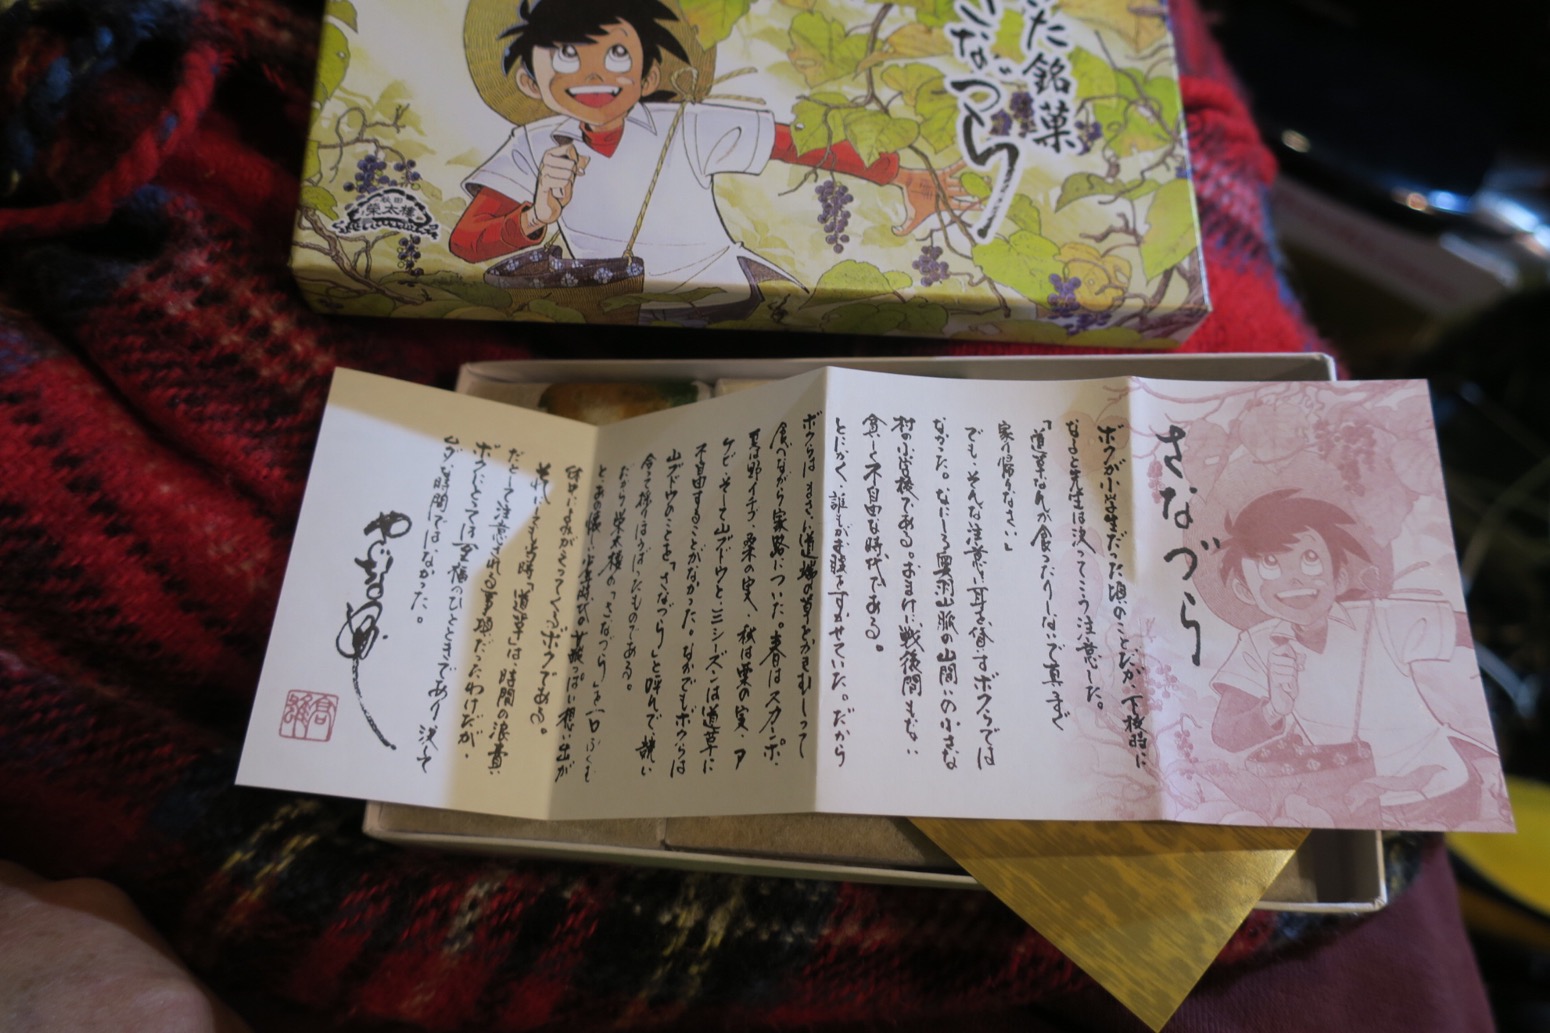 た銘菓
さなづら
秋田
さなづら
ボクが小学生だった頃のことだが、下校時に
なると先生は決ってこう注意した。
「道草なんか食ったりしないで真すぐ
家へ帰りなさい」
でも、そんな注意に耳を貸すボクらでは
なかった。なにしろ奥羽山脈の山間いの小さな
村の小学校である。おまけに戦後間もない
食に不自由な時代である。
とにかく、誰もがお腹をすかせていた。だから
ボクらはまさに道端の草をかきむしって
食べながら家路についた。春はスカンポ、
夏は野イチゴ、桑の実、秋は栗の実、ア
ケビ、そして山ブドウと、三シーズンは道草に
不自由することがなかった。なかでもボクらは
山ブドウのことを「さなづら」と呼んで、競い
合って ほうばったものである。
だから榮太楼の「さなづら」を一口ふくむ
とあの懐しい少年時代の甘酸っぱい想い出が
広がってくるボクである。
当時「道草」は、時間の浪費
だとして注意される羽目だったわけだが、
ボクにとっては至福のひとときであり、決して
ムダな時間ではなかった。
やぐち高雄
高雄